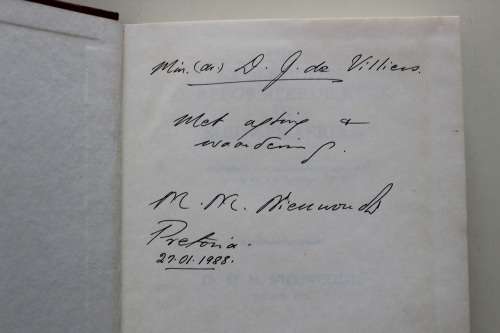 Min. (dr.) D. J. de Villiers.
Met agting &
waardering.
M. M.
Pretoria.
27.01.1988.